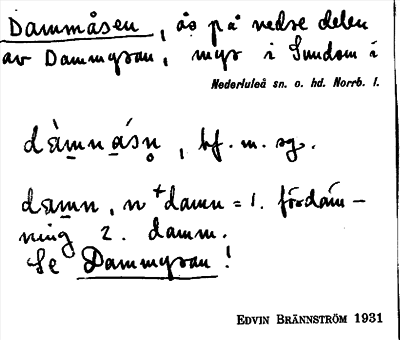 Dammåsen, ås på nedre delen
av Dammyran, myr i Sundom i
Nederluleå sn. o. hd. Norrb. l.
dàmnásn̥, bf. m. sg.
damn, n + damn = 1. fördäm-
ning 2. damm.
Se Dammyran!
EDVIN BRÄNNSTRÖM 1931